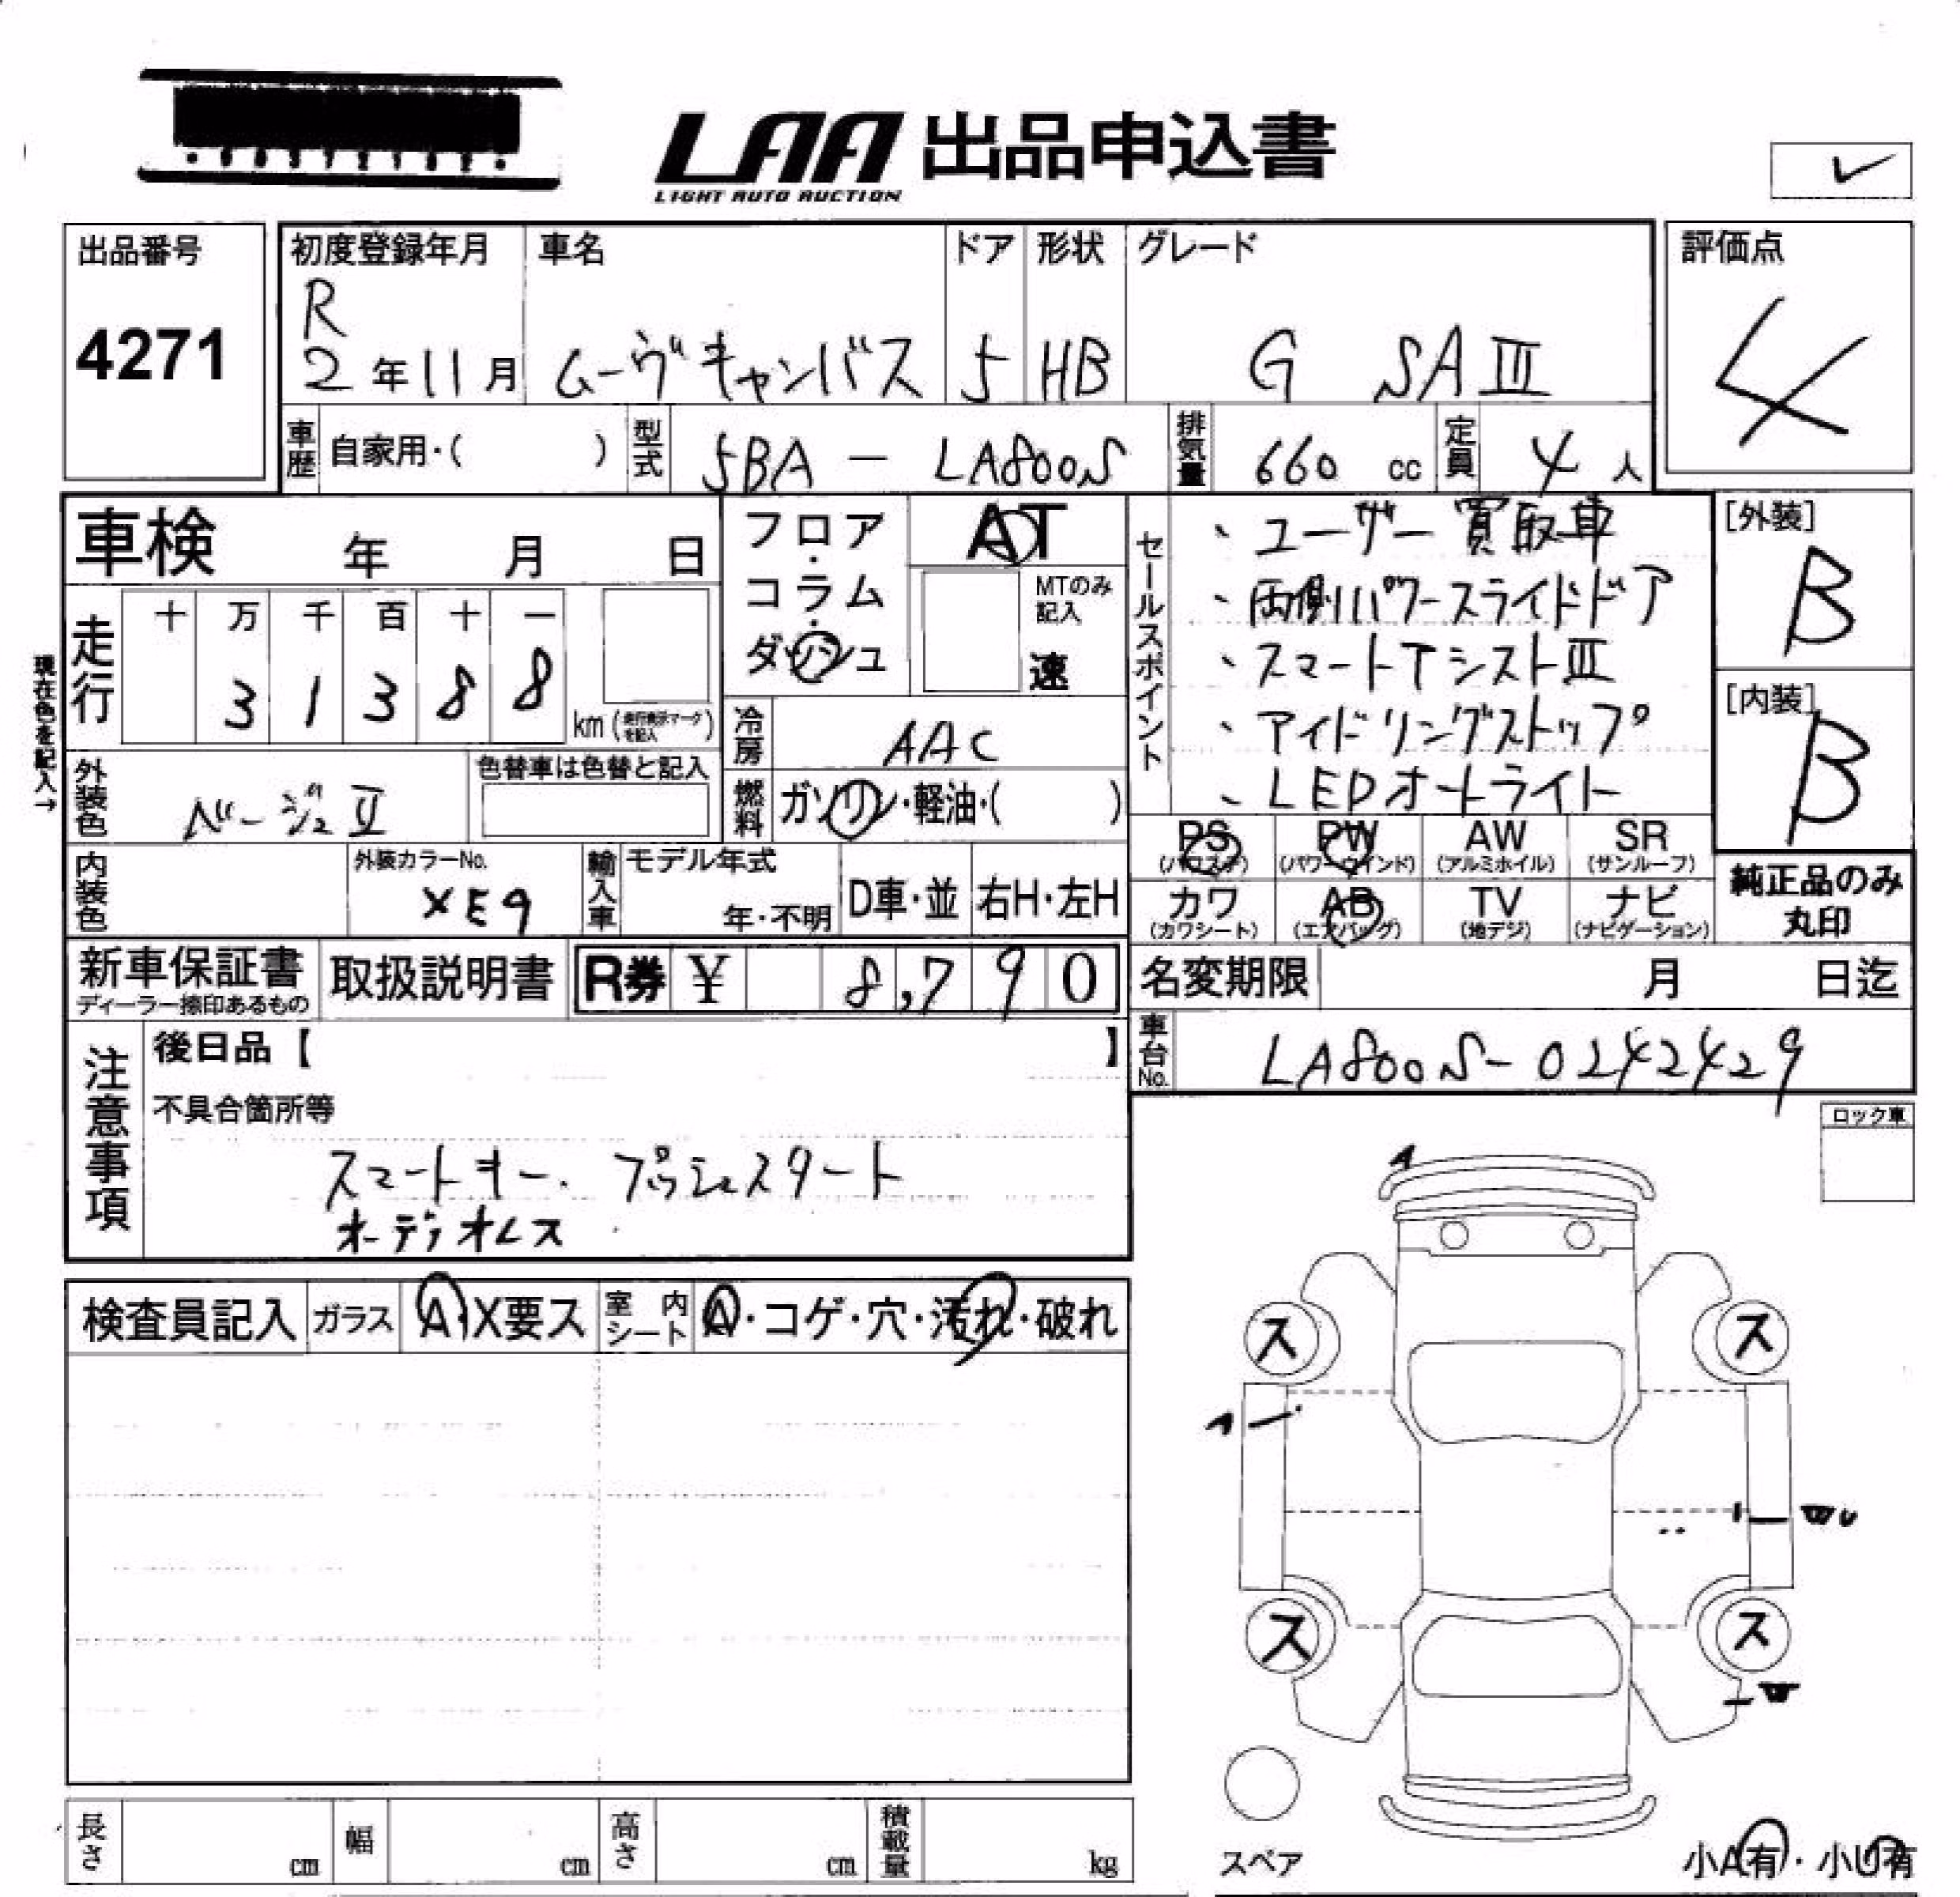 LAA 出品申込書
LIGHT AUTO AUCTION
出品番号
4271
初度登録年月
R
2 年 11 月
車名
ムーヴキャンバス
ドア
5
形状
HB
グレード
G SAⅢ
評価点
4
車歴 自家用・( )
型式 5BA - LA800S
排気量 660 cc
定員 4 人
車検 年 月 日
走行
十 万 千 百 十 一
3 1 3 8 8
km (走行表示マークを記入)
現在色を記入→
外装色 ベージュⅡ
色替車は色替と記入
内装色
外装カラーNo.
XE9
輸入車
モデル年式
年・不明
D車・並
右H・左H
フロア・
コラム・
ダッシュ
AT
MTのみ
記入
速
冷房 AAC
燃料 ガソリン・軽油・( )
セールスポイント
・ユーザー買取車
・両側パワースライドドア
・スマートアシストⅢ
・アイドリングストップ
・LEDオートライト
[外装]
B
[内装]
B
PS
(パワステ)
PW
(パワーウインド)
AW
(アルミホイル)
SR
(サンルーフ)
カワ
(カワシート)
AB
(エアバッグ)
TV
(地デジ)
ナビ
(ナビゲーション)
純正品のみ
丸印
新車保証書
ディーラー捺印あるもの
取扱説明書
R券 ¥ 8,790
名変期限 月 日迄
車台No. LA800S-0242429
注意事項
後日品【 】
不具合箇所等
スマートキー. プッシュスタート
オーディオレス
ロック車
検査員記入
ガラス A・X要ス
室内シート A・コゲ・穴・汚れ・破れ
A
ス
ス
A
ス
ス
長さ cm
幅 cm
高さ cm
積載量 kg
スペア
小A有・小U有